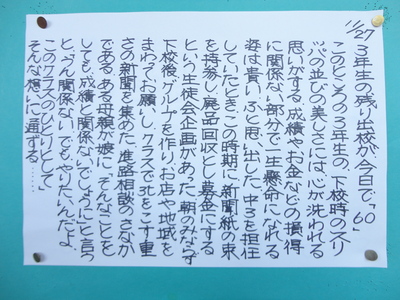 11/27
3年生の残り出校が今日で、"60"
このところの3年生の、下校時のスリ
ッパの並びの美しさには、心が洗われる
思いがする。成績やお金などの損得
に関係ない部分で一生懸命になれる
姿は貴い。ふと思い出した。中3を担任
していたとき、この時期に新聞紙の束
を持参し、廃品回収とし募金にする
という生徒会企画があった。朝のみならず
下校後、グループを作り、お店や地域を
まわってお願いし、クラスで北をこす重
さの新聞を集めた。進路相談のさなか
である。ある母親が娘に「そんなことを
しても、成績に関係ないでしょうに」と言う
と、「うん、関係ない。でもやりたいんだよ、
このクラスのひとりとして」
そんな想いに通ずる……。